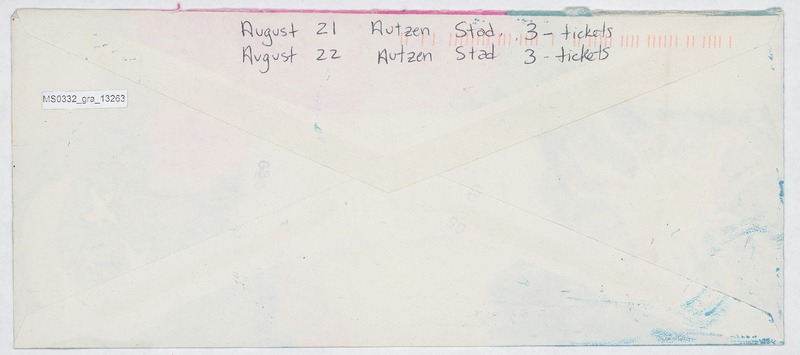 August 21 Autzen Stad. 3 - tickets
August 22 Autzen Stad 3 - tickets
MS0332_gra_13263